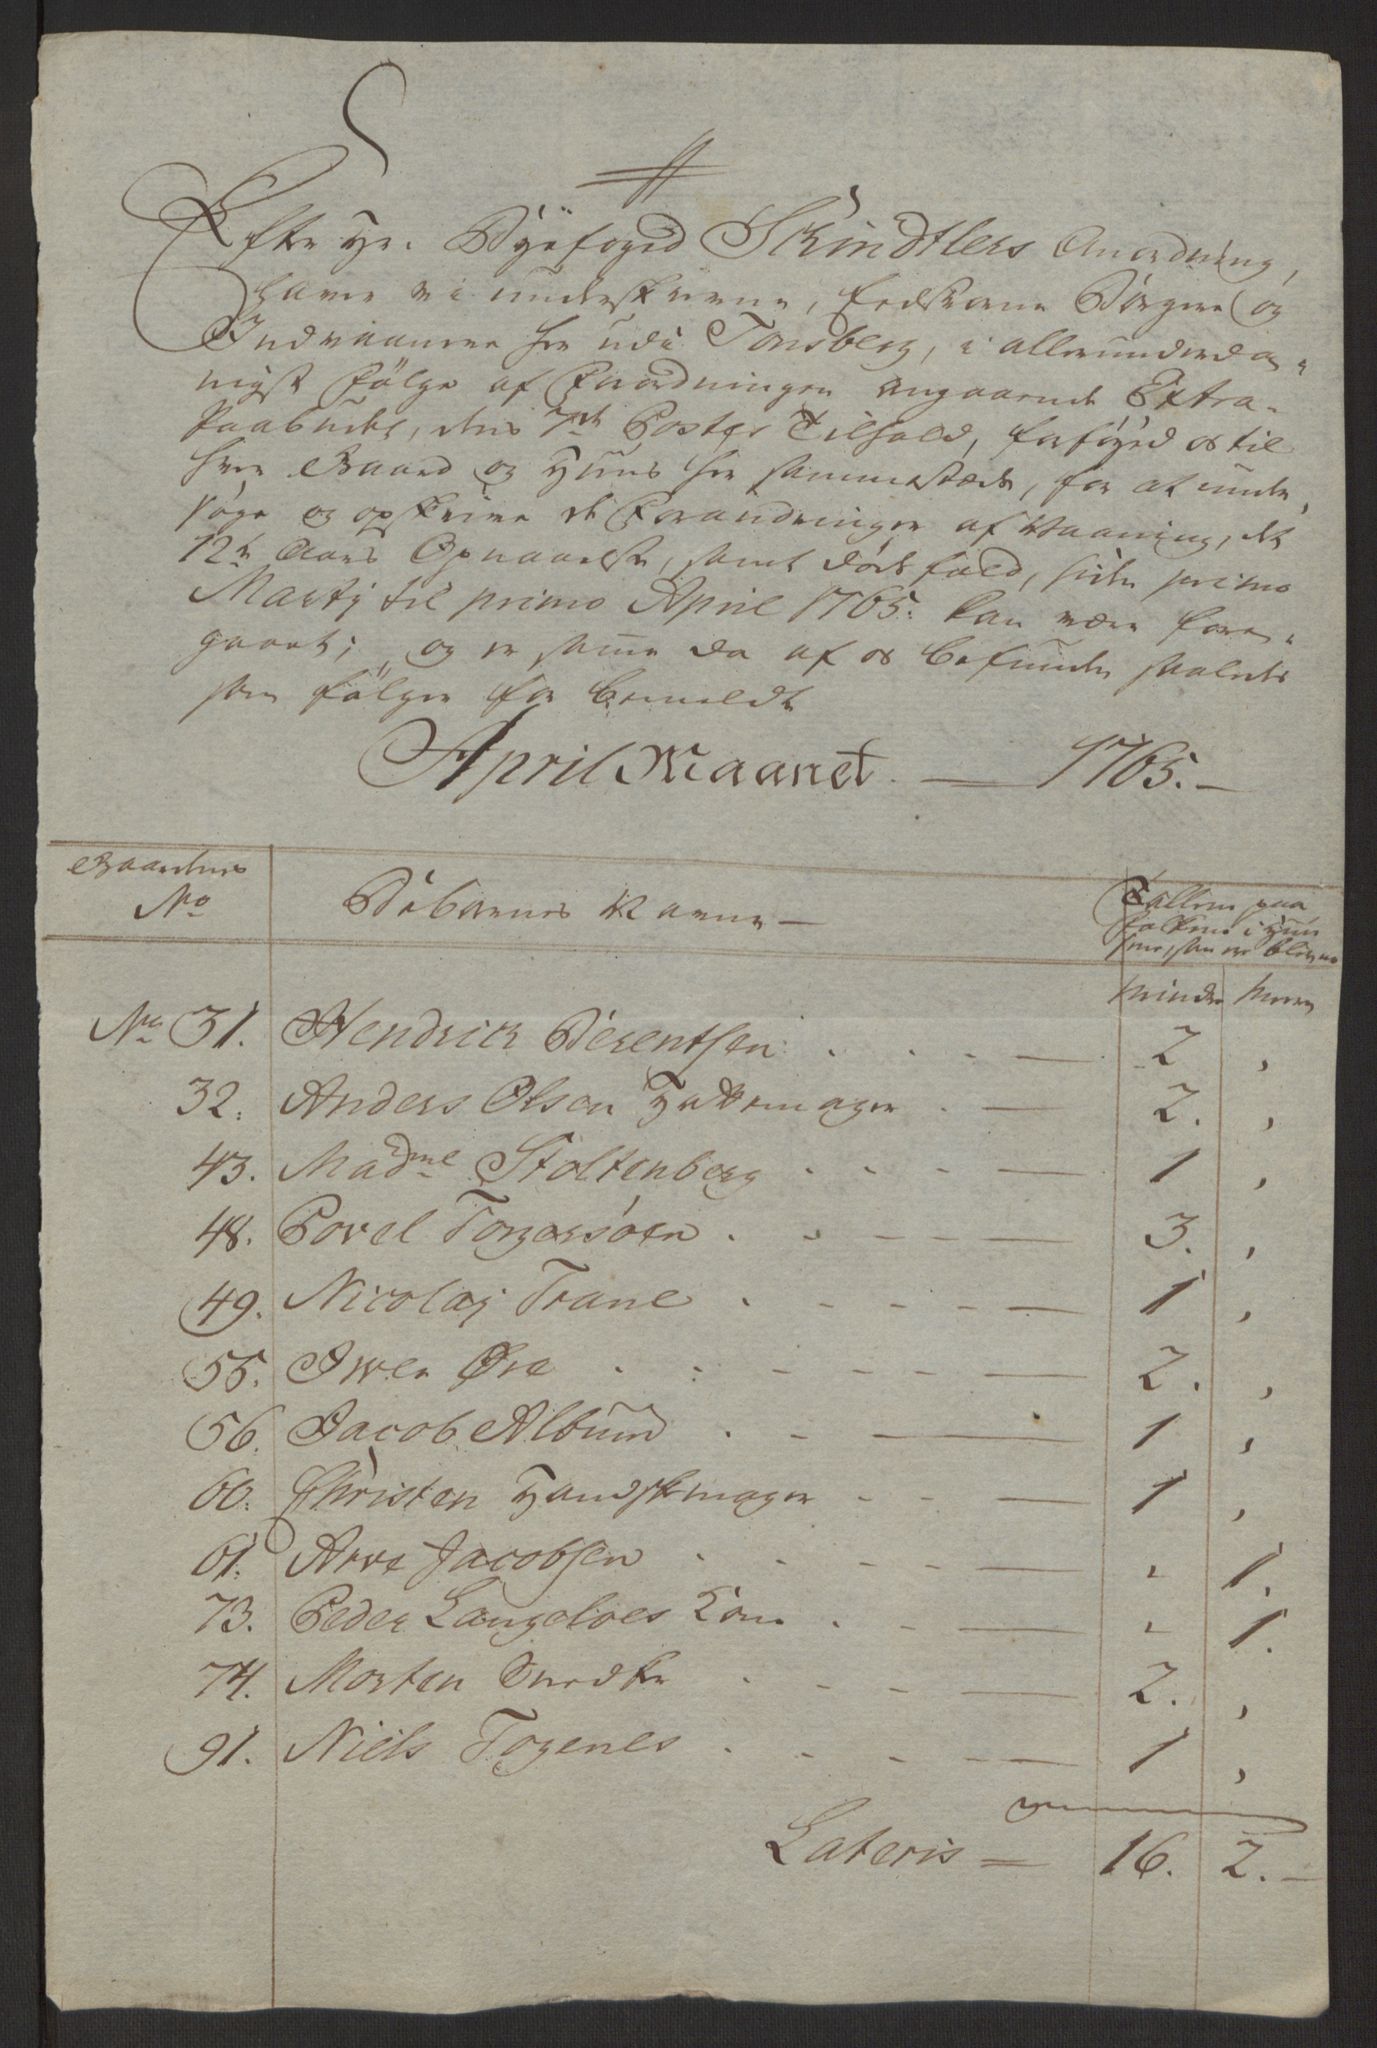 Efter Hr. Byefoged Skindtlers Anordning,
haver vi underskrevne, Eedsvorne Borgere og
Indvaanere her udi Tonsberg, i allerunderda-
nigst Følge af Forordningen angaaende Extra-
Paabudet, dens 7de Postes Tilhold, forføyed os til
hver Gaard og Huus her sammestæds, for at under-
søge og opskrive de Forandringer af Vaaning, det
12te Aars Opnaaelse, samt Dødsfald, siden primo
Martij til primo April 1765. kan være fore-
gaaet; og er samme da af os befunden saaledes
som følger for bemeldte
April Maanet. — 1765.—
Gaardenes
No
Beboernes Navne —
Tallene paa
Folkene i Huu-
sene, som ere bleven
Mindre Meere
No 31. Hendrich Berentsen . . . — 2 ,
32. Anders Olsen Hattemager . — 2. ,
43. Madme Stoltenberg . . . — 1 ,
48. Povel Torgersøen . . . — 3. ,
49. Nicolaj Trane . . . — 1 ,
55. Iver Øre . . . — 2. ,
56. Jacob Album . . — 1 ,
60. Christen Handskemager . . — 1 ,
61. Arve Jacobsen . . . — , 1.
73. Peder Langeloes Kone . . — , 1.
74. Morten Snedker . . . — 2. ,
91. Niels Togenes . . . — 1 ,
Lateris = 16. 2.—